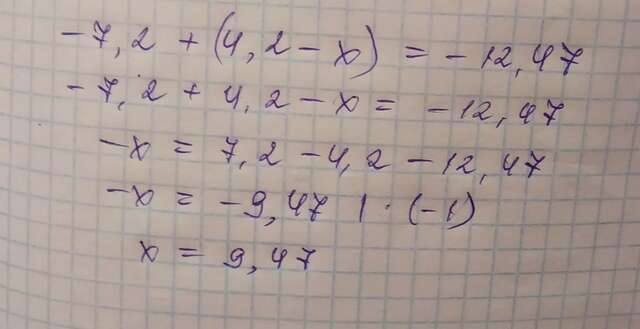 -7,2 + (4,2 - x) = -12,47
-7,2 + 4,2 - x = -12,47
-x = 7,2 - 4,2 - 12,47
-x = -9,47 | · (-1)
x = 9,47